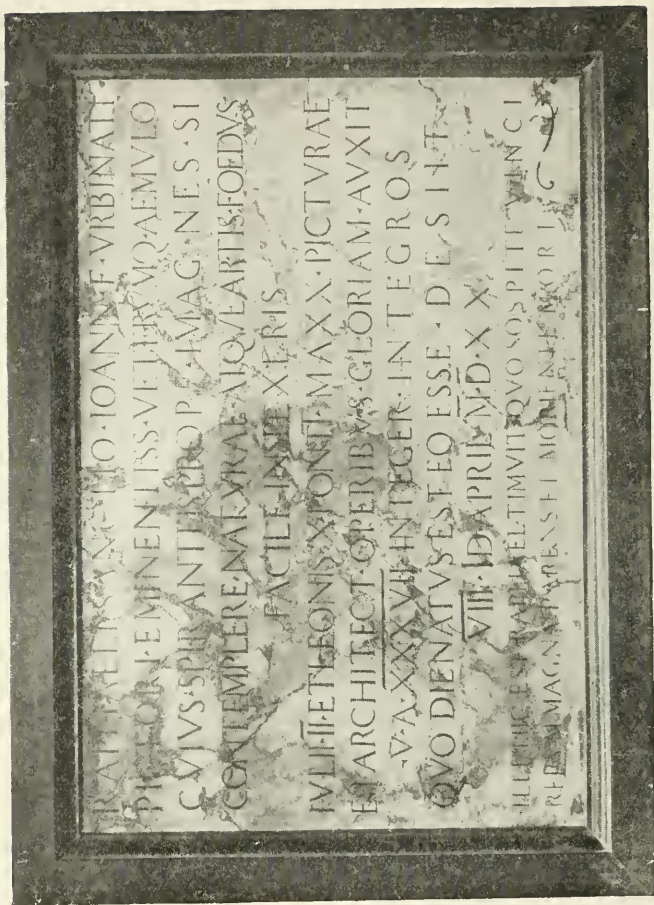 RAPHAELI·SANCTIO·IOANN·F·VRBINATI
PICTORI·EMINENTISS·VETERVMQ·AEMVLO
CVIVS·SPIRANTEIS·PROPE·IMAGINES·SI
CONTEMPLERE·NATVRAE·ATQVE·ARTIS·FOEDVS
FACILE·INSPEXERIS
IVLII·II·ET·LEONIS·X·PONTT·MAXX·PICTVRAE
ET·ARCHITECT·OPERIBVS·GLORIAM·AVXIT
V·A·XXXVII·INTEGER·INTEGROS
QVO·DIE·NATVS·EST·EO·ESSE·DESIIT
VIII·ID·APRIL·M·D·XX
ILLE·HIC·EST·RAPHAEL·TIMVIT·QVO·SOSPITE·VINCI
RERVM·MAGNA·PARENS·ET·MORIENTE·MORI